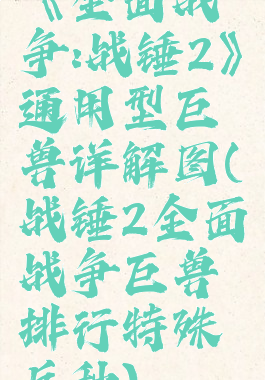 《全面战
争:战锤2》
通用型巨
兽详解图(
战锤2全面
战争巨兽
排行特殊
兵种)